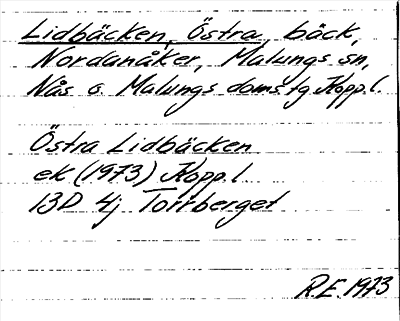 Lidbäcken, Östra, bäck,
Nordanåker, Malungs sn,
Nås o. Malungs doms tg Kopp.l.
Östra Lidbäcken
ek (1973) Kopp.l
13D 4j Torrberget
R.E. 1973